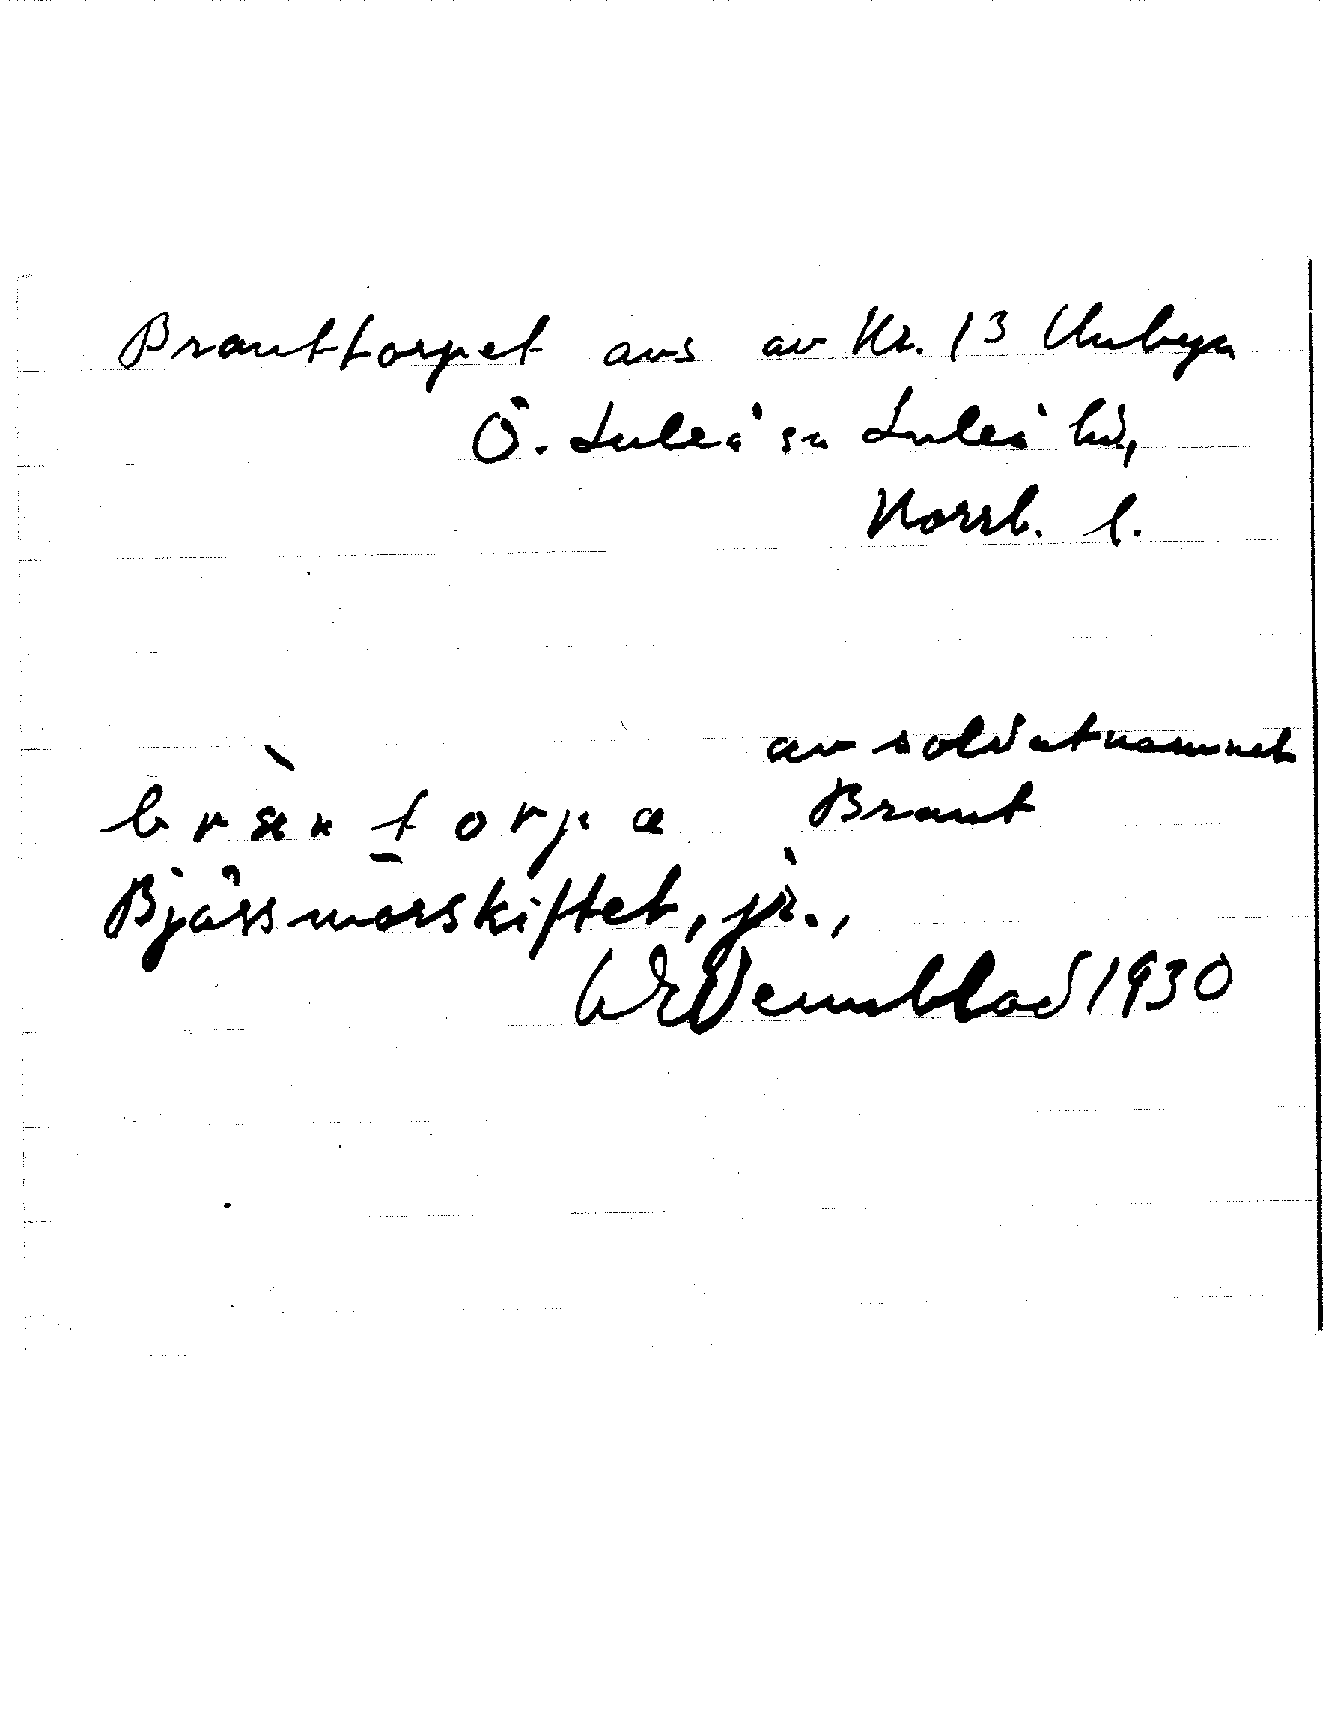 Branttorpet avs av Nr. 13 Unbyn
Ö. Luleå sn Luleå hd,
Norrb. l.
av soldatnamnet
bràn torpæ Brant
Bjässmorskiftet, jr.,
W E Vennblad 1930